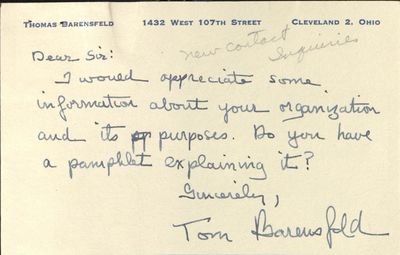 THOMAS BARENSFELD 1432 WEST 107TH STREET CLEVELAND 2, OHIO
new contact
Inquiries
Dear Sir:
I would appreciate some
information about your organization
and its pp purposes. Do you have
a pamphlet explaining it?
Sincerely,
Tom Barensfeld